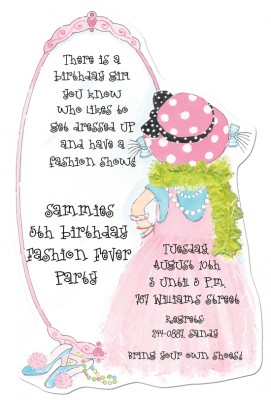 There is a
birthday girl
you know
who likes to
get dressed up
and have a
fashion show!
Sammies
5th birthday
Fashion Fever
Party
Tuesday
August 10th
3 until 5 p.m.
767 Williams Street
Regrets
244-0887, Sandy
Bring your own shoes!